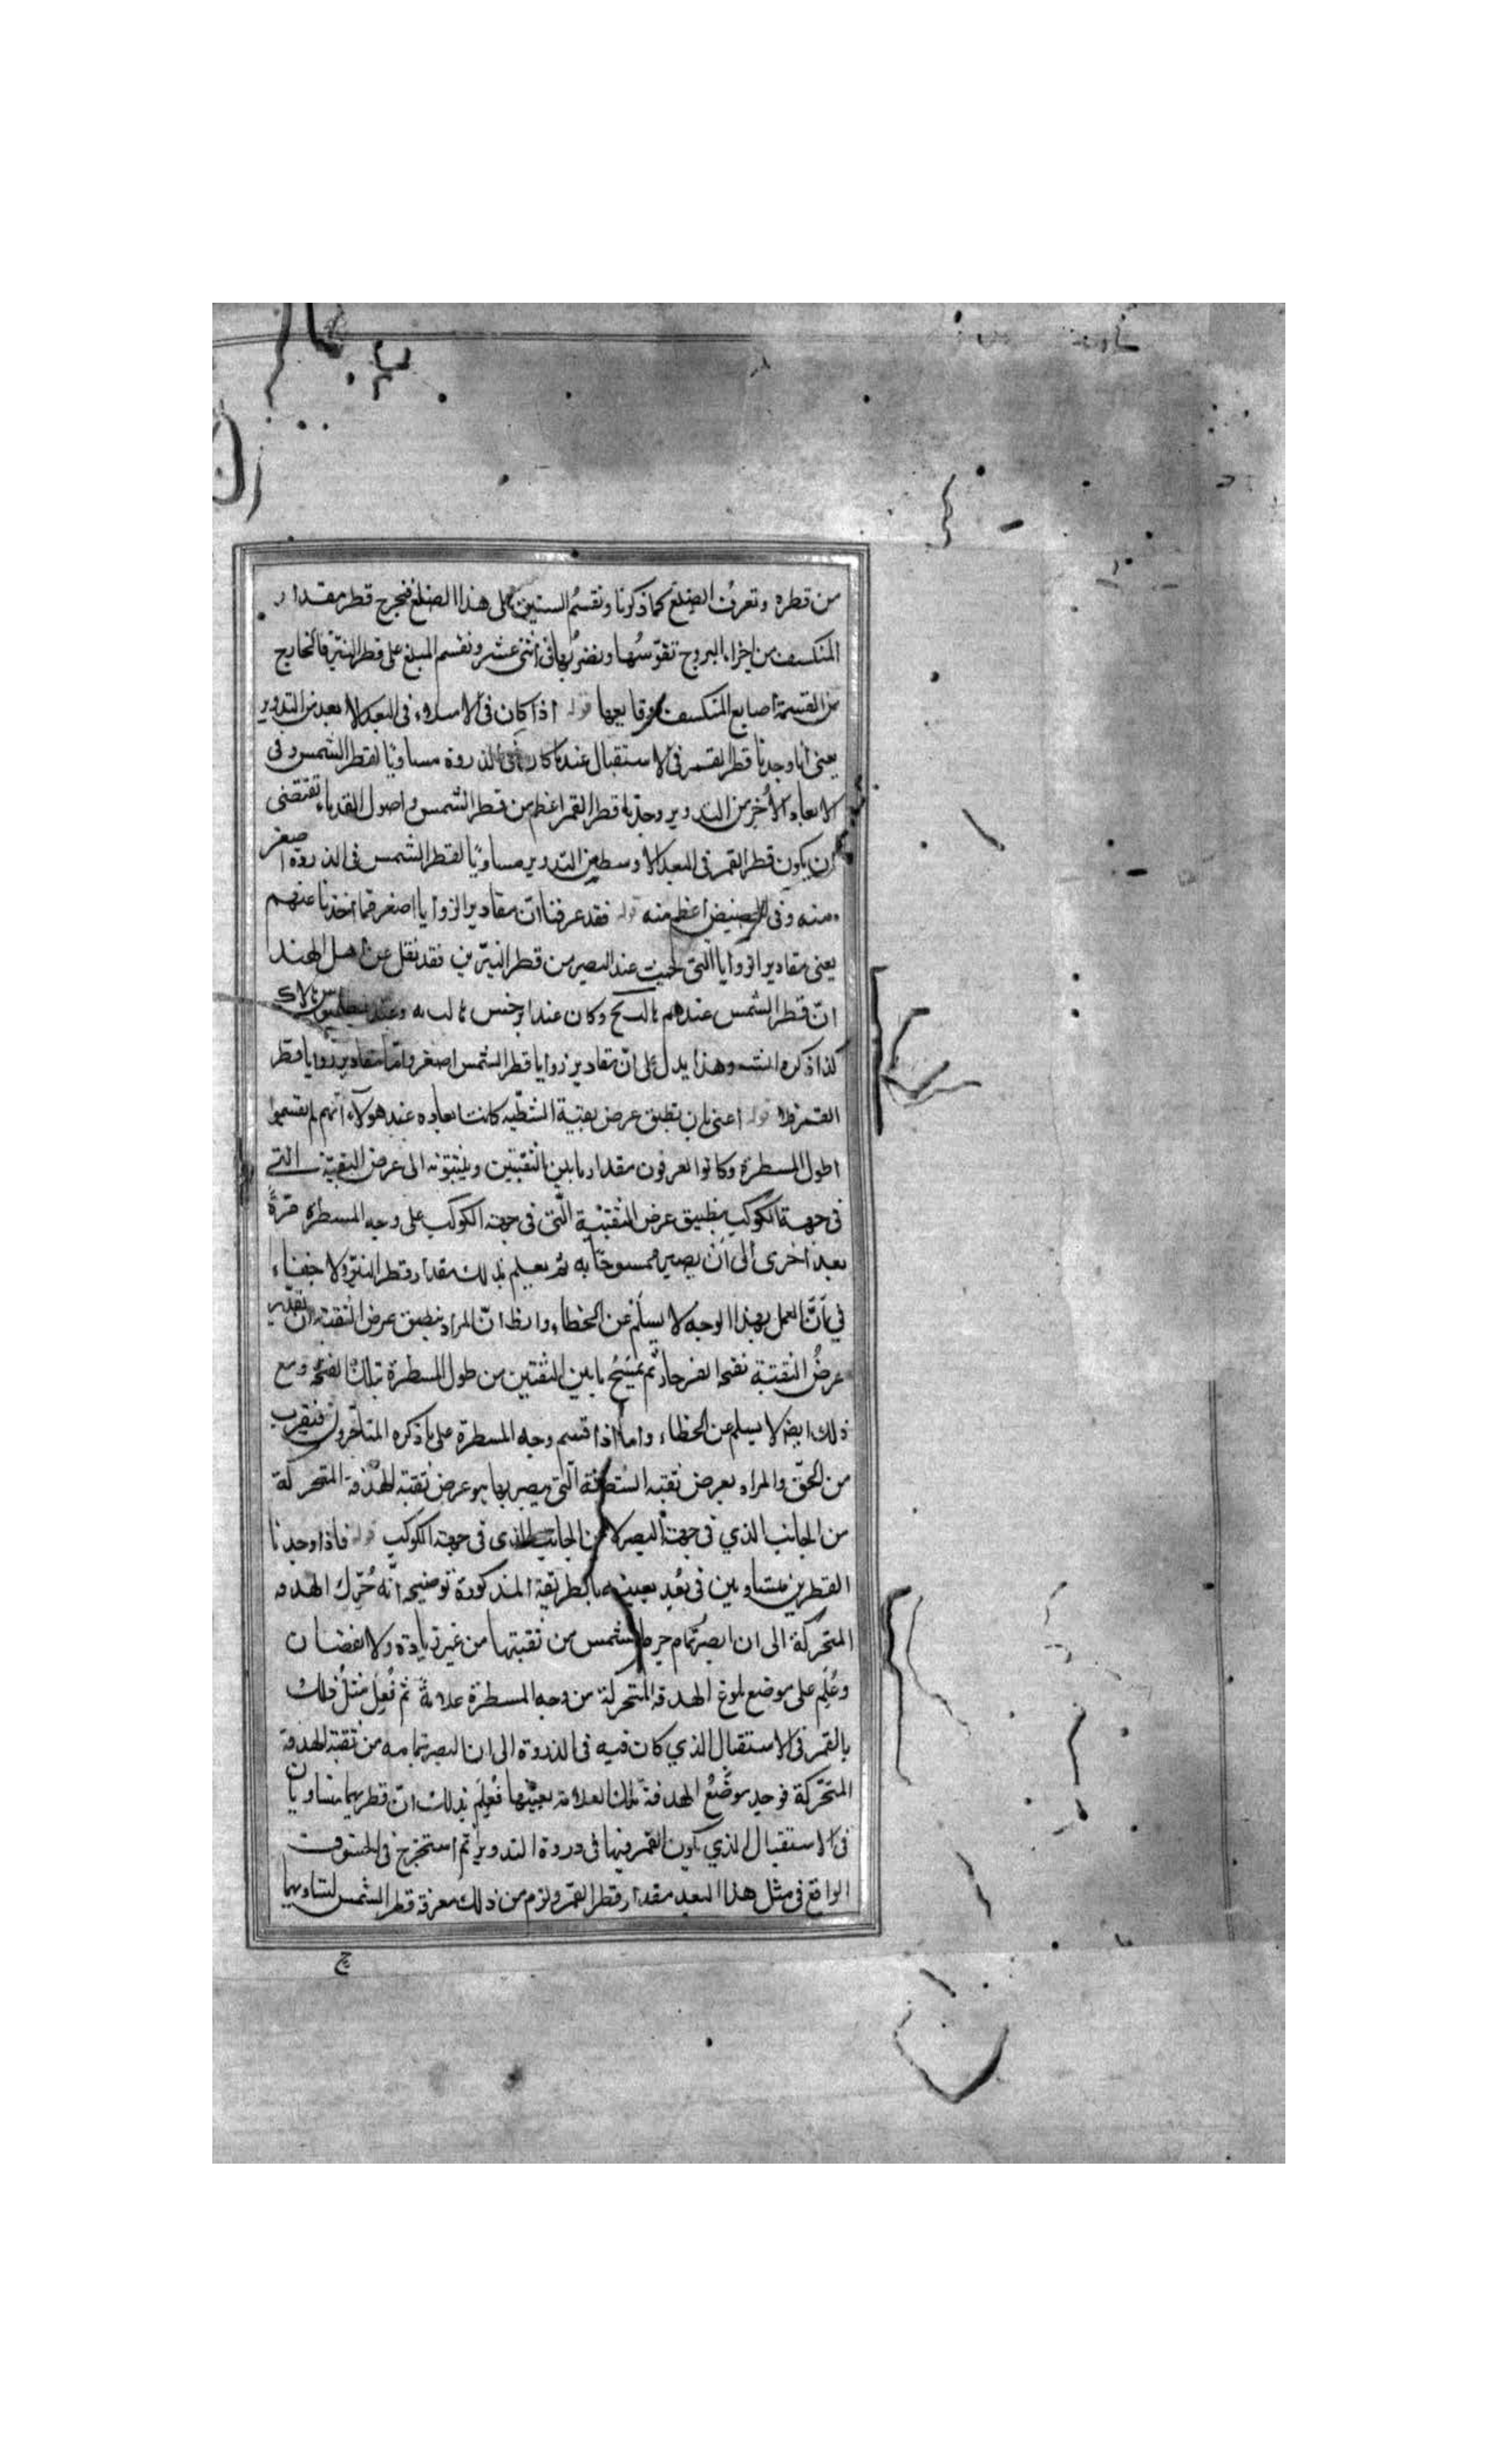 من قطره ونعرف الضلع كما ذكرنا ونقسم الستين على هذا الضلع فنخرج قطر مقدار
المنكسف من اجزاء البروج نقوسها ونضربها فى اثنى عشر ونقسم المبلغ على قطر النير فالخارج
من القسمة اصابع المنكسف ودقايقها قوله اذا كان فى الامتلاء فى البعد الابعد من التدوير
يعنى انا وجدنا قطر القمر فى الاستقبال عندما كان فى الذروة مساويا لقطر الشمس وفى
الابعاد الأخر من التدوير وجدنا قطر القمر اعظم من قطر الشمس واصول القدماء تقتضى
ان يكون قطر القمر فى البعد الاوسط من التدوير مساويا لقطر الشمس فى الذروة اصغر
منه وفى الحضيض اعظم منه قوله فقد عرفنا ان مقادير الزوايا اصغر مما اخذنا عنهم
يعنى مقادير الزوايا التى عند البصر من قطر النيرين فقد نقل عن اهل الهند
ان قطر الشمس عندهم وكان عند ابرخس
كذا ذكره وهذا يدل على ان مقادير زوايا قطر الشمس اصغر واما مقادير زوايا قطر
القمر فلا قوله اعنى بان تطبق عرض ثقبة الشظية كانت العادة عند هولاء انهم لم يقسموا
اطول المسطرة وكانوا يعرفون مقدار ما بين الثقبتين الى عرض الثقبة التى
فى جهة الكوكب بتطبيق عرض الثقبة التى فى جهة الكوكب على وجه المسطرة مرة
بعد اخرى الى ان يصير ممسوحا به ثم يعلم بذلك مقدار قطر النير ولا خفاء
فى ان العمل بهذا الوجه لا يسلم عن الخطاء واظ ان المراد بتطبيق عرض الثقبة ان نقدر
عرض الثقبة بفتح الفرجار ثم نمسح ما بين الثقبتين من طول المسطرة بتلك الفتحة ومع
ذلك ايضا لا يسلم عن الخطاء واما اذا قسم وجه المسطرة على ما ذكره المتاخرون فيقرب
من الحق والمراد بعرض ثقبة الشظية التى يبصر بها هو عرض ثقبة الهدفة المتحركة
من الجانب الذي فى جهة البصر لا من الجانب الذى فى جهة الكوكب قوله فاذا وجدنا
القطرين متساويين فى بعد بعينه بالطريقة المذكورة توضيحه انه حرك الهدفة
المتحركة الى ان ابصر تمام جرم الشمس من ثقبتها من غير زيادة ولا نقصان
وعلم على موضع بلوغ الهدفة المتحركة من وجه المسطرة علامة ثم فعل مثل ذلك
بالقمر فى الاستقبال الذي كان فيه فى الذروة الى ان ابصر تمامه من ثقبة الهدفة
المتحركة فوجد موضع الهدفة تلك العلامة بعينها فعلم بذلك ان قطريهما متساويان
فى الاستقبال الذي يكون القمر فيها فى ذروة التدوير ثم استخرج فى الخسوف
الواقع فى مثل هذا البعد مقدار قطر القمر ولزم من ذلك معرفة قطر الشمس لتساويهما